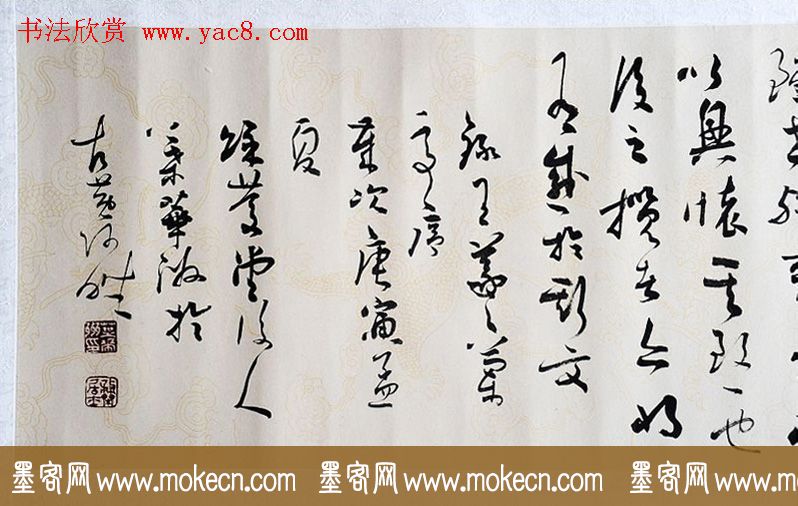 书法欣赏 www.yac8.com
雖世殊事
以興懷其致一也
後之攬者亦將
有感於斯文
錄王羲之蘭
亭序
歲次庚寅孟
夏
堂後人
華於
古
墨客网 www.mokecn.com 墨客网 www.mokecn.com 墨客网 www.mokecn.com